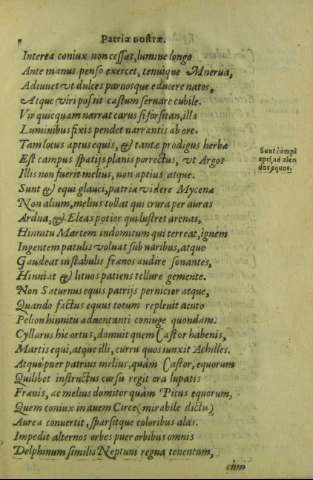 Patriæ nostræ.
Interea coniux non cessat, lumine longo
Ante manus penso exercet, tenuique Mnerua,
Adiuuet vt dulces paruosque educere natos,
Atque viri possit castum seruare cubile.
Vir quicquam narrat carus si forsitan, illa
Luminibus fixis pendet narrantis ab ore.
Tam lotus aptus equis, & tanta prodigus herba
Est campus spatijs planis porrectus, vt Argos
Illis non fuerit melius, non aptius atque.
Sunt & equi glauci, patria videre Mycena
Non alium, melius tollat qui crura per auras
Ardua, & Eleas potior qui lustret arenas,
Hinnitu Martem indomitum qui terreat, ignem
Ingentem patulis voluat sub naribus, atque
Gaudeat in stabulis frænos audire sonantes,
Hinniat & lituos patiens tellure gemente.
Non Saturnus equis patrijs pernicior atque,
Quando factus equus totum repleuit acuto
Pelion hinnitu aduentanti coniuge quondam.
Cyllarus hic ortus, domuit quem Castor habenis,
Martis equi, atque illi, curru quos iunxit Achilles.
Atque puer patrius melius, quàm Castor, equorum
Quilibet instructus cursu regit ora lupatis
Frænis, ac melius domitor quàm Picus equorum,
Quem coniux in auem Circe (mirabile dictu)
Aurea conuertit, sparsitque coloribus alas.
Impedit alternos orbes puer orbibus omnis
Delphinum similis Neptuni regna tenentum,
cùm
Sunt campi
apti, ad alen
dos equos.